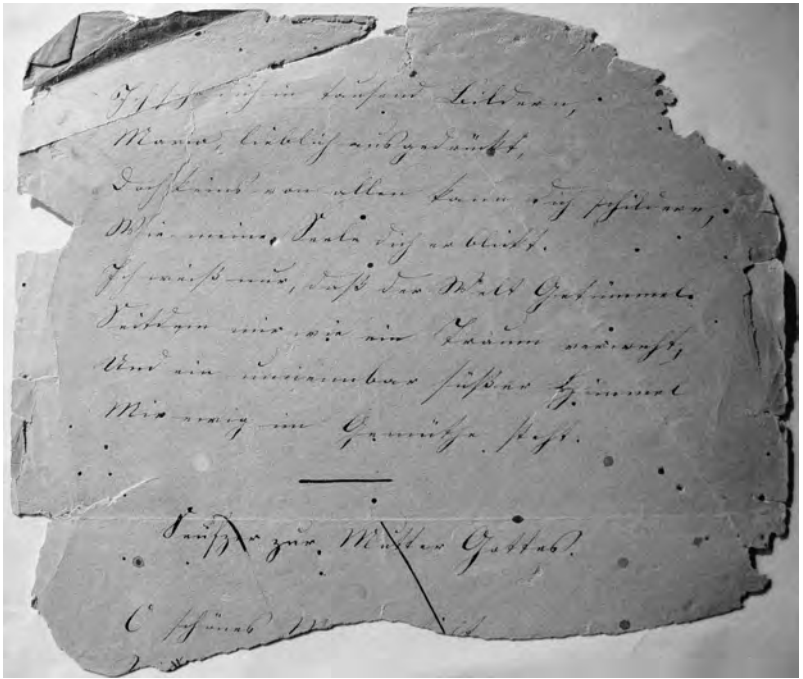 Ich sehe dich in tausend Bildern,
Maria, lieblich ausgedrückt,
Doch keins von allen kann dich schildern,
Wie meine Seele dich erblickt.
Ich weiß nur, daß der Welt Getümmel
Seitdem mir wie ein Traum verweht,
Und ein unnennbar süßer Himmel
Mir ewig im Gemüthe steht.
Seufzer zur Mutter Gottes.
O schönes